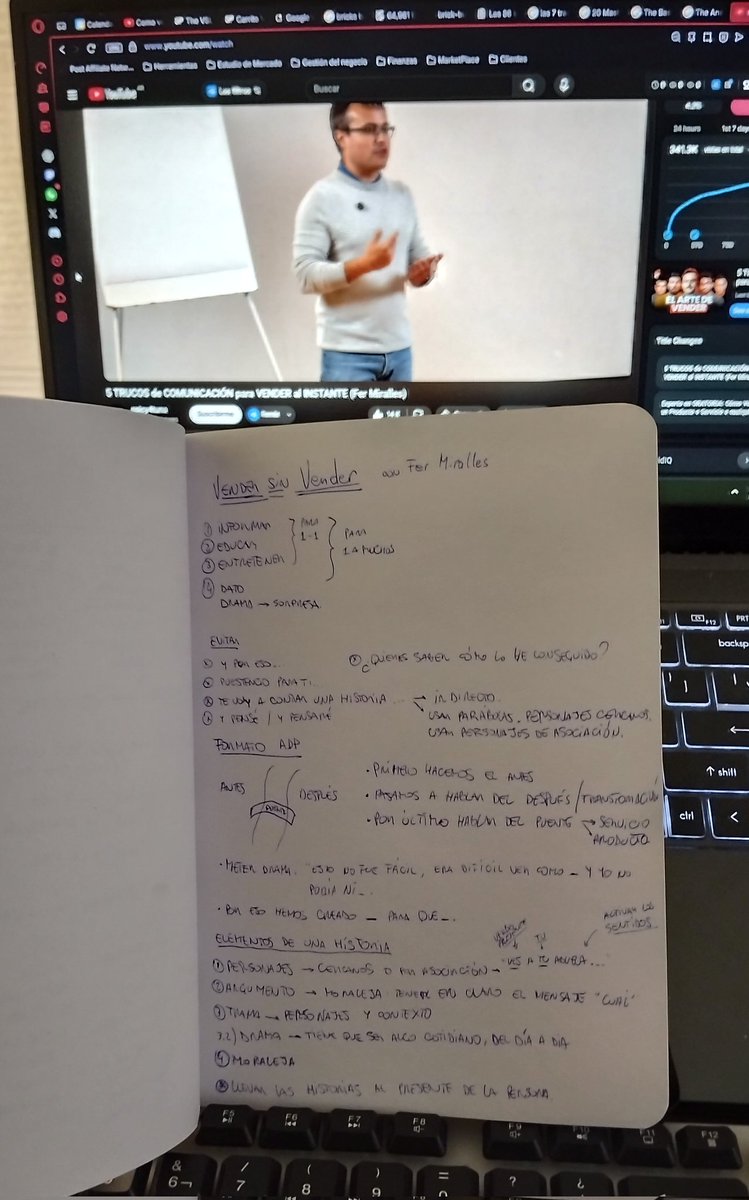 Google
www.youtube.com/watch
Herramientas
Estudio de Mercado
Gestión del negocio
Finanzas
MarketPlace
Clientes
YouTube
Buscar
24 hours
341.3K
0
EL ARTE DE
VENDER
Title Changes
5 TRUCOS de COMUNICACIÓN
VENDER al INSTANTE (Fer Mira
5 TRUCOS de COMUNICACIÓN para VENDER al INSTANTE (Fer Miralles)
VENDER SIN Vender con Fer Miralles
① INFORMAR
② EDUCAR
③ ENTRETENER
PARA
1-1
PARA
1 A MUCHOS
④ DATO
DRAMA → SORPRESA
EVITAR
Y POR ESO...
¿QUIERES SABER CÓMO LO HE CONSEGUIDO?
PUES TENGO PARA TI...
TE VOY A CONTAR UNA HISTORIA... → IR DIRECTO.
Y PENSÉ / Y PENSARÉ
USAR PARÁBOLAS, PERSONAJES CERCANOS.
USAR PERSONAJES DE ASOCIACIÓN.
FORMATO ADP
ANTES
DESPUÉS
PUENTE
· PRIMERO HACEMOS EL ANTES
· PASAMOS A HABLAR DEL DESPUÉS / TRANSFORMACIÓN
· POR ÚLTIMO HABLAR DEL PUENTE → SERVICIO
PRODUCTO
· METER DRAMA. "ESTO NO FUE FÁCIL, ERA DIFÍCIL VER COMO _ Y YO NO
PODÍA NI _.
· POR ESO HEMOS CREADO _ PARA QUE _.
ELEMENTOS DE UNA HISTORIA
TU
ACTIVAR LOS
SENTIDOS
① PERSONAJES → CERCANOS O POR ASOCIACIÓN → "VES A TU ABUELA..."
② ARGUMENTO → MORALEJA TENER EN CLARO EL MENSAJE "CUAL"
③ TRAMA → PERSONAJES Y CONTEXTO
3.2) DRAMA → TIENE QUE SER ALGO COTIDIANO, DEL DÍA A DIA
④ MORALEJA
LLEVAR LAS HISTORIAS AL PRESENTE DE LA PERSONA.
backsp
shift
ctrl
<
F5
F6
F7
F8
F9
F10
F11
F12
&
6
/
7
(
8
)
9
=
0
?
¿